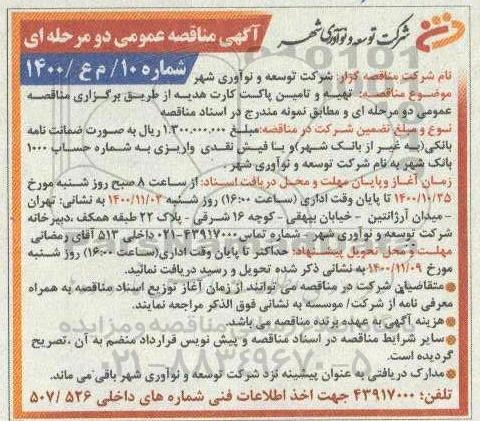 شرکت توسعه و نوآوری شهر
آگهی مناقصه عمومی دو مرحله ای
شماره ۱۰/ م ع /۱۴۰۰
نام شرکت مناقصه گزار: شرکت توسعه و نوآوری شهر
موضوع مناقصه: تهیه و تامین پاکت کارت هدیه از طریق برگزاری مناقصه
عمومی دو مرحله ای و مطابق نمونه مندرج در اسناد مناقصه
نوع و مبلغ تضمین شرکت در مناقصه: مبلغ ۱.۳۰۰.۰۰۰.۰۰۰ ریال به صورت ضمانت نامه
بانکی(به غیر از بانک شهر)و یا فیش نقدی واریزی به شماره حساب ۱۰۰۰
بانک شهر به نام شرکت توسعه و نوآوری شهر .
زمان آغاز و پایان مهلت و محل دریافت اسناد: از ساعت ۸ صبح روز شنبه مورخ
۱۴۰۰/۱۰/۲۵ تا پایان وقت اداری (ساعت ۱۶:۰۰) روز شنبه ۱۴۰۰/۱۱/۰۲ به نشانی: تهران
- میدان آرژانتین - خیابان بیهقی - کوچه ۱۶ شرقی - پلاک ۲۲ طبقه همکف ،دبیرخانه
شرکت توسعه و نوآوری شهر- شماره تماس ۴۳۹۱۷۰۰۰-۰۲۱ داخلی ۵۱۳ آقای رمضانی
مهلت و محل تحویل پیشنهاد: حداکثر تا پایان وقت اداری(ساعت ۱۶:۰۰) روز شنبه
مورخ ۱۴۰۰/۱۱/۰۹ به نشانی ذکر شده تحویل و رسید دریافت نمائید.
متقاضیان شرکت در مناقصه می توانند از زمان آغاز توزیع اسناد مناقصه به همراه
معرفی نامه از شرکت/ موسسه به نشانی فوق الذکر مراجعه نمایند.
هزینه آگهی به عهده برنده مناقصه می باشد.
سایر شرایط مناقصه در اسناد مناقصه و پیش نویس قرارداد منضم به آن ،تصریح
گردیده است.
مدارک دریافتی به عنوان پیشینه نزد شرکت توسعه و نوآوری شهر باقی می ماند.
تلفن: ۴۳۹۱۷۰۰۰ جهت اخذ اطلاعات فنی شماره های داخلی ۵۲۶ /۵۰۷
۰۲۱-۸۸۳۴۹۶۷۰-۵